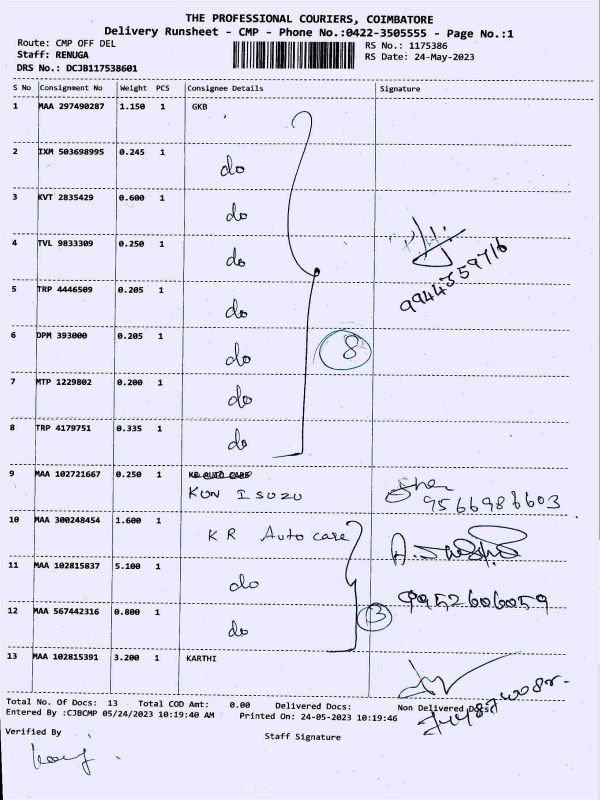 THE PROFESSIONAL COURIERS, COIMBATORE
Delivery Runsheet - CMP - Phone No.:0422-3505555 - Page No.:1
Route: CMP OFF DEL
RS No.: 1175386
Staff: RENUGA
RS Date: 24-May-2023
DRS No.: DCJB117538601
S No Consignment No Weight PCS Consignee Details Signature
1 MAA 297490287 1.150 1 GKB
2 IXM 503698995 0.245 1 do
3 KVT 2835429 0.600 1 do
4 TVL 9833309 0.250 1 do
9944359716
5 TRP 4446509 0.205 1 do
6 DPM 393000 0.205 1 do
8
7 MTP 1229802 0.200 1 do
8 TRP 4179751 0.335 1 do
9 MAA 102721667 0.250 1 KR AUTO CARE
KUN ISUZU
9566986603
10 MAA 300248454 1.600 1 KR Auto care
11 MAA 102815837 5.100 1 do
9952606059
12 MAA 567442316 0.800 1 do
3
13 MAA 102815391 3.200 1 KARTHI
Total No. Of Docs: 13 Total COD Amt: 0.00 Delivered Docs: Non Delivered Docs:
Entered By :CJBCMP 05/24/2023 10:19:40 AM Printed On: 24-05-2023 10:19:46
Verified By
Staff Signature